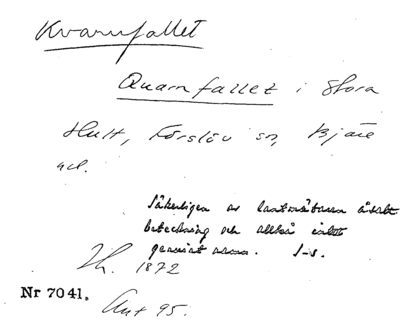 Kvarnfallet
Quarnfallet i Stora
Hult, Förslöv sn, Bjäre
hd.
Säkerligen av lantmätaren åsatt
beteckning och alltså intet
genuint namn. J-s.
1872
Nr 7041.
Ant 95.